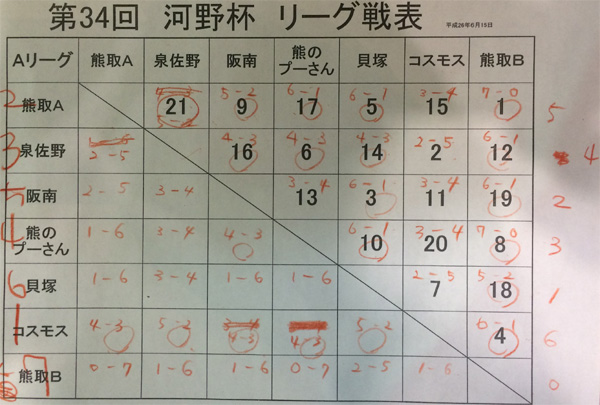 第34回 河野杯 リーグ戦表 平成26年6月15日
Aリーグ 熊取A 泉佐野 阪南 熊のプーさん 貝塚 コスモス 熊取B
2 熊取A 21 5-2 9 6-1 17 6-1 5 3-4 15 7-0 1 5
3 泉佐野 2-5 4-3 16 4-3 6 4-3 14 2-5 2 6-1 12 4
5 阪南 2-5 3-4 3-4 13 6-1 3 3-4 11 6-1 19 2
4 熊のプーさん 1-6 3-4 4-3 6-1 10 3-4 20 7-0 8 3
6 貝塚 1-6 3-4 1-6 1-6 2-5 7 5-2 18 1
1 コスモス 4-3 5-2 4-3 4-3 5-2 6-1 4 6
7 熊取B 0-7 1-6 1-6 0-7 2-5 1-6 0